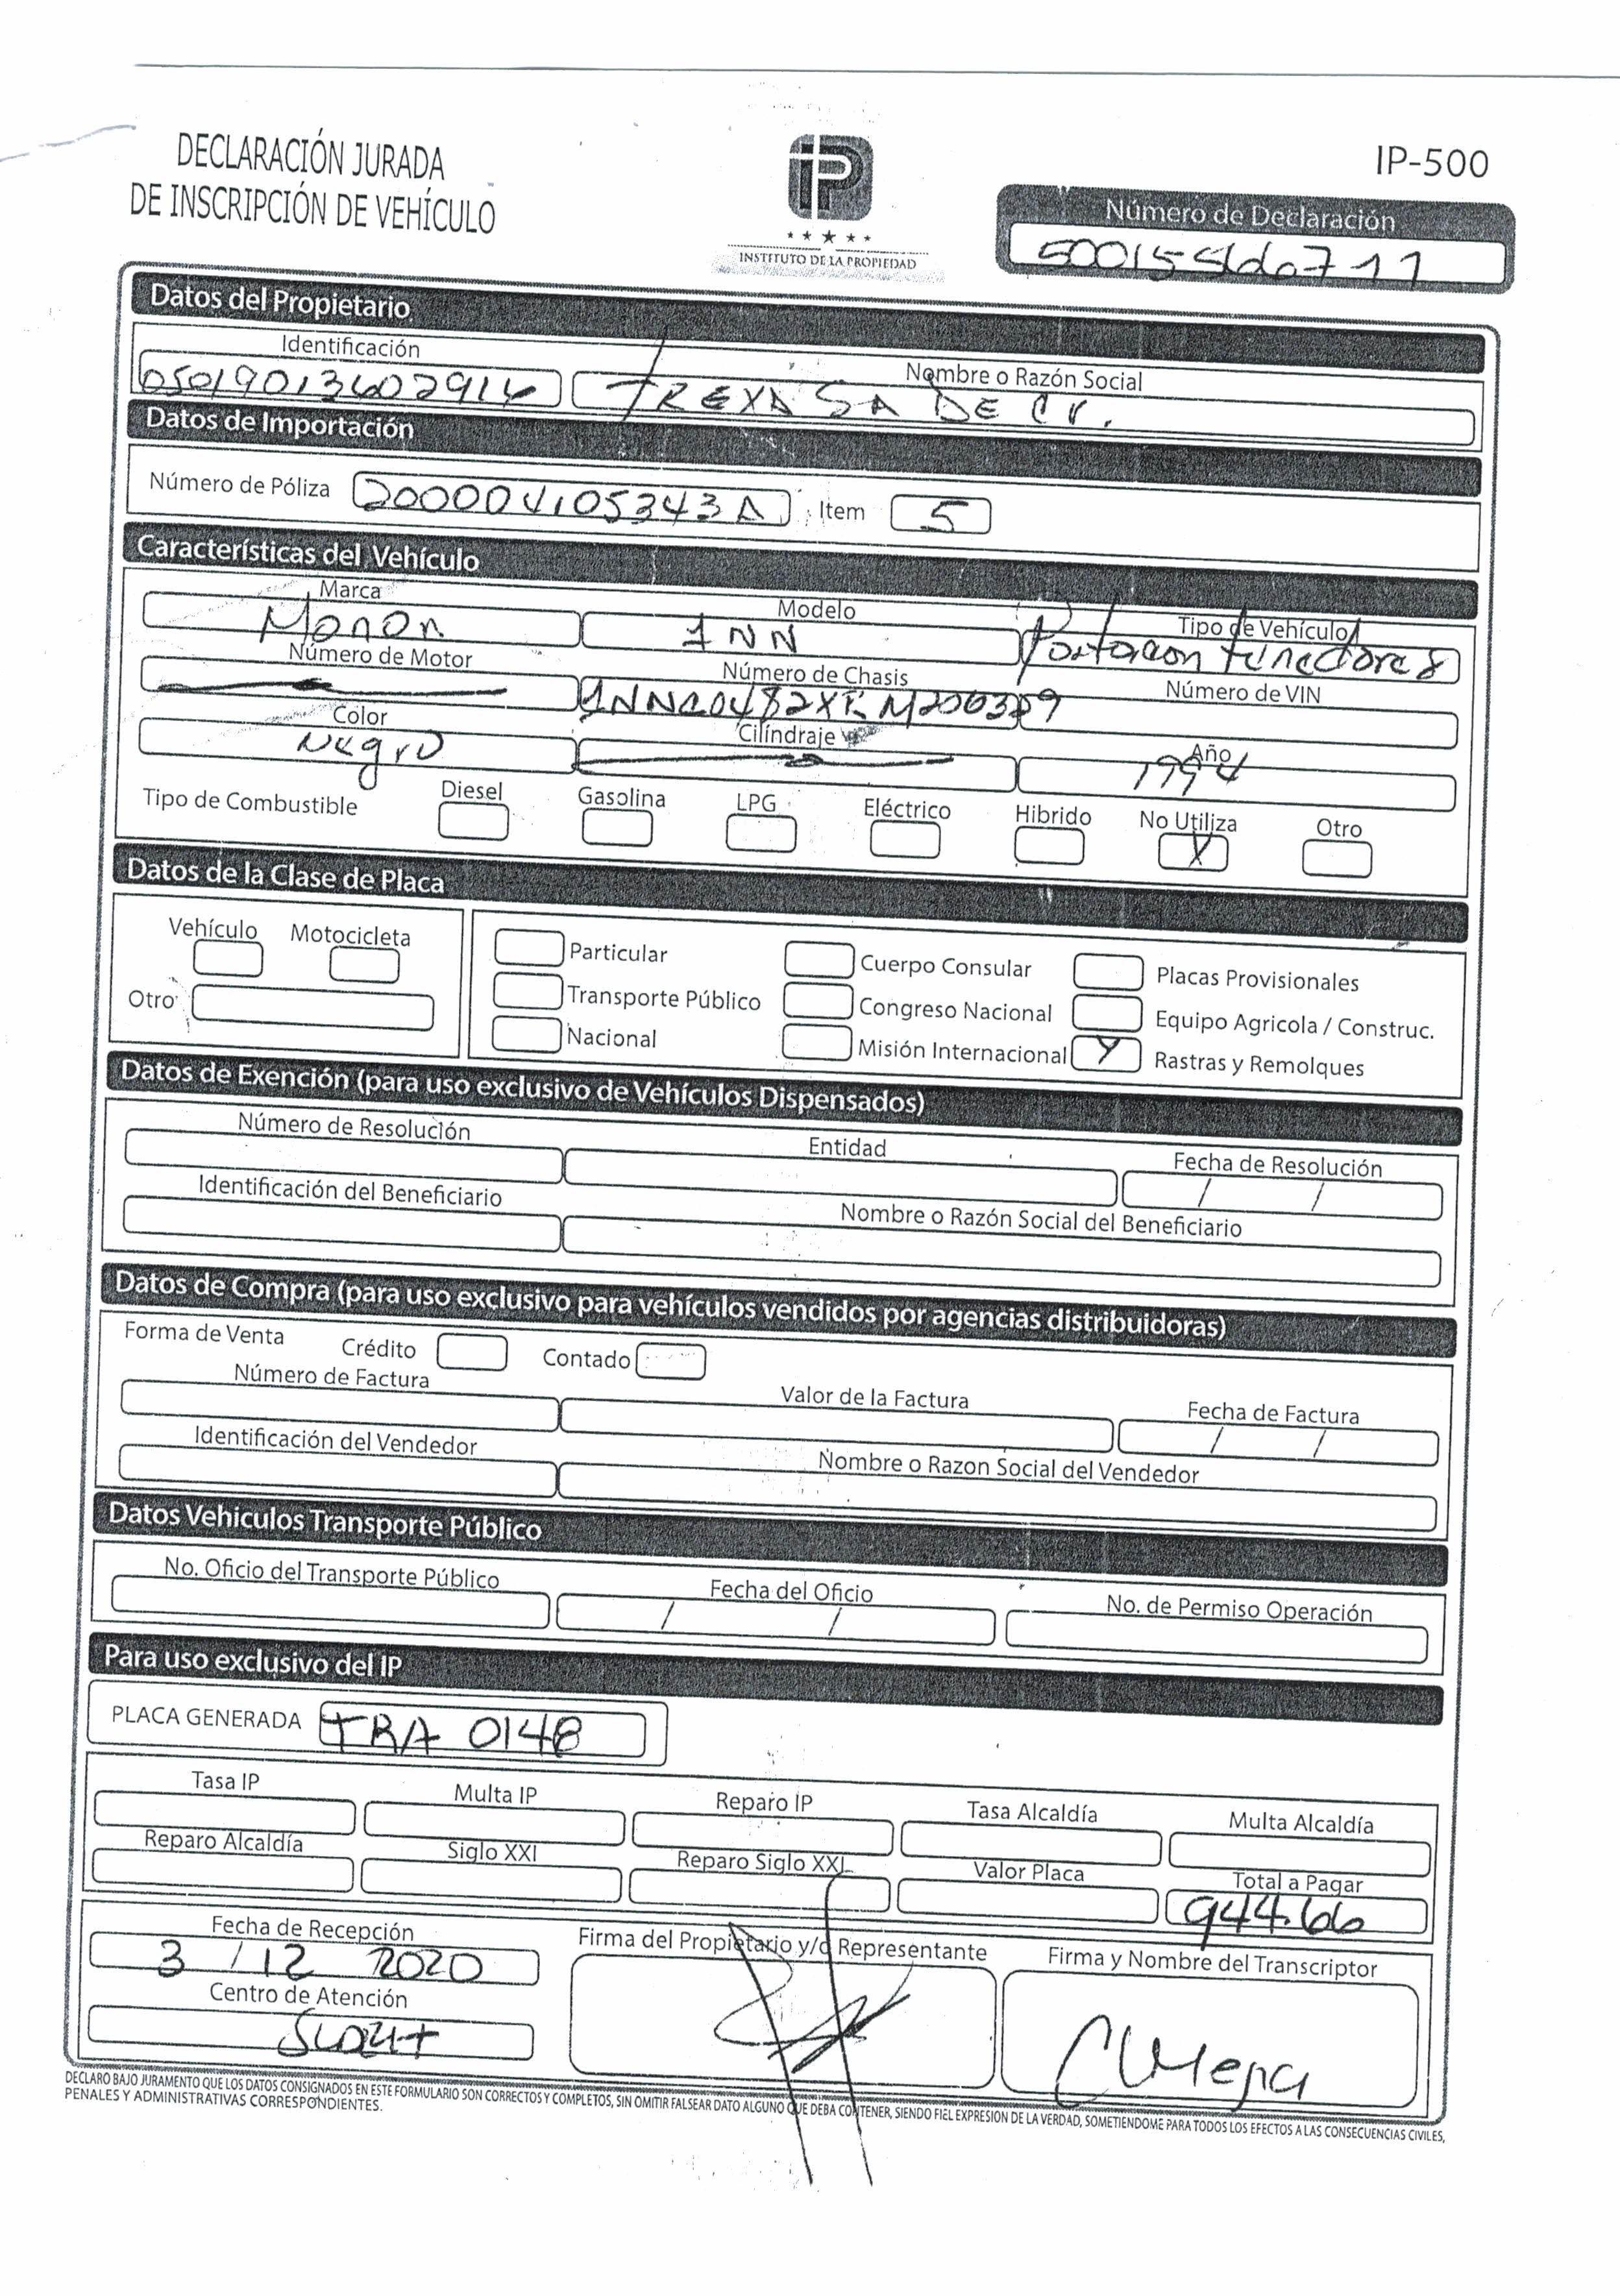 DECLARACIÓN JURADA
DE INSCRIPCIÓN DE VEHÍCULO
iP
INSTITUTO DE LA PROPIEDAD
IP-500
Número de Declaración
Datos del Propietario
Identificación Nombre o Razón Social
TREXA SA DE CV.
Datos de Importación
Número de Póliza 200004105343A Item 5
Características del Vehículo
Marca Modelo Tipo de Vehículo
Monon 1NN Portacontenedores
Número de Motor Número de Chasis Número de VIN
Color Cilíndraje Año
Negro 1994
Tipo de Combustible Diesel Gasolina LPG Eléctrico Hibrido No Utiliza Otro
X
Datos de la Clase de Placa
Vehículo Motocicleta
Otro
Particular Cuerpo Consular Placas Provisionales
Transporte Público Congreso Nacional Equipo Agricola / Construc.
Nacional Misión Internacional X Rastras y Remolques
Datos de Exención (para uso exclusivo de Vehículos Dispensados)
Número de Resolución Entidad Fecha de Resolución
/ /
Identificación del Beneficiario Nombre o Razón Social del Beneficiario
Datos de Compra (para uso exclusivo para vehículos vendidos por agencias distribuidoras)
Forma de Venta Crédito Contado
Número de Factura Valor de la Factura Fecha de Factura
/ /
Identificación del Vendedor Nombre o Razon Social del Vendedor
Datos Vehiculos Transporte Público
No. Oficio del Transporte Público Fecha del Oficio No. de Permiso Operación
/ /
Para uso exclusivo del IP
PLACA GENERADA TRA 0148
Tasa IP Multa IP Reparo IP Tasa Alcaldía Multa Alcaldía
Reparo Alcaldía Siglo XXI Reparo Siglo XXI Valor Placa Total a Pagar
944.66
Fecha de Recepción Firma del Propietario y/o Representante Firma y Nombre del Transcriptor
3 / 12 2020
Centro de Atención
DECLARO BAJO JURAMENTO QUE LOS DATOS CONSIGNADOS EN ESTE FORMULARIO SON CORRECTOS Y COMPLETOS, SIN OMITIR FALSEAR DATO ALGUNO QUE DEBA CONTENER, SIENDO FIEL EXPRESION DE LA VERDAD, SOMETIENDOME PARA TODOS LOS EFECTOS A LAS CONSECUENCIAS CIVILES,
PENALES Y ADMINISTRATIVAS CORRESPONDIENTES.